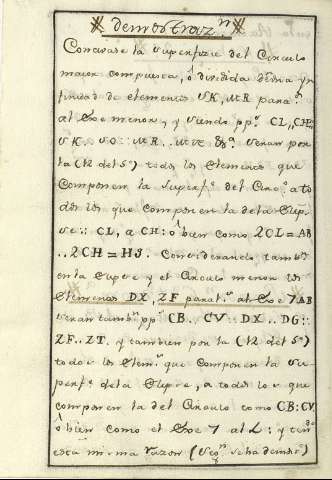 Demostraz.n
Concivase la superfizie del Circulo
maior compuesta, ó dividida de una yn
finidad de elementos VK, MR paral.s
al Exe menor, y siendo pp.s CL, CH::
VK.. VO:: MR.. MX &c. seran por
la (12 del 5º) todos los Elementos que
componen la superf.e del Circ.o a to
dos los que componen la dela Elip
se:: CL, a CH: ó bien como 2CL = AB
.. 2CH = HS. Considerando tamb.n
en la Elipse y el Circulo menor los
Elementos DX, ZF paral.s al Exe AB
seran tamb.n pp.s CB.. CV:: DX.. DG::
ZF.. ZT. y tambien por la (12 del 5º)
todos los Elem.s que componen la su
perf.e dela Elipse, a todos los que
componen la del Circulo como CB: CV,
ó bien como el Exe al : y ten.do
esta misma razon (seg.n se ha demos.o)